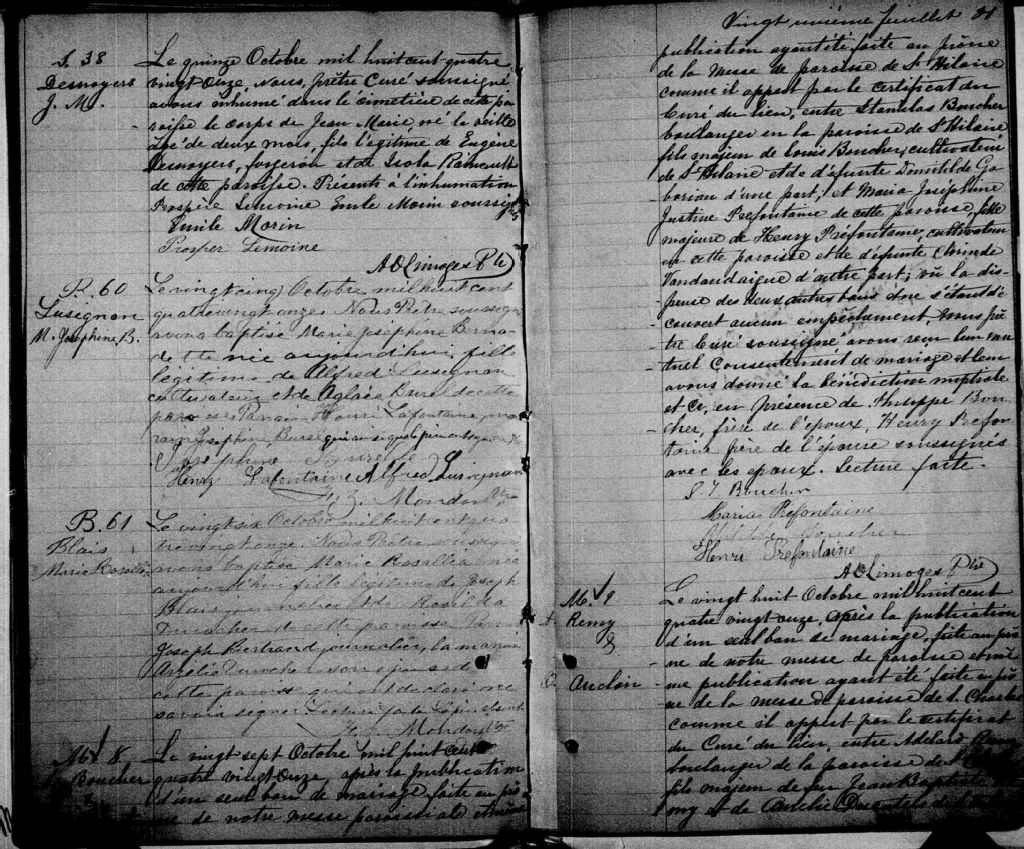 S. 38
Desnoyers
J. M.
Le quinze Octobre mil huit cent quatre
vingt onze, nous, prêtre Curé soussigné
avons inhumé dans le cimetière de cette pa
roisse le corps de Jean Marie, né la veille
de deux mois, fils légitime de Eugène
Desnoyers, forgeron et de
de cette paroisse. Présents à l'inhumation
Prospère Lemoine Emile Morin soussignés
Emile Morin
Prosper Lemoine
A O Limoges Ptre
B. 60
Lusignan
M. Josephine B.
Le vingt cinq Octobre mil huit cent
quatrevingt onze. Nous Prêtre soussigné
avons baptisé Marie Josephine Berna-
dette née aujourd'hui, fille
légitime de Alfred Lusignan
cultivateur et de Aglaée Burel de cette
paroisse. Parrain Henri Lafontaine, mar
raine Josephine Burel qui ainsi que le père ont signé
Josephine Burelle
Henry Lafontaine Alfred Lusignan
Mondor Ptre
B. 61
Blais
Marie Rosallia
Le vingt six Octobre mil huit cent qua
trevingt onze. Nous Prêtre soussigné
avons baptisé Marie Rosallia née
aujourd'hui fille légitime de Joseph
Blais journalier et de
Durocher de cette paroisse.
Joseph Bertrand journalier, la marraine
Amélie Durocher son épouse de
cette paroisse qui ont déclaré ne
savoir signer. Lecture faite
Mondor Ptre
M. 8
Boucher
Le vingt sept Octobre mil huit cent
quatre vingt onze, après la publication
d'un seul ban de mariage faite au prô
ne de notre messe paroissiale et même
Vingt unième feuillet 21
publication ayant été faite au prône
de la messe de paroisse de St Hilaire
comme il appert par le certificat du
Curé du lieu, entre Stanislas Boucher
boulanger en la paroisse de St Hilaire
fils majeur de Louis Boucher, cultivateur
de St Hilaire et de défunte Domitilde Ga
boriau d'une part; et Maria Josephine
Justine Prefontaine de cette paroisse, fille
majeure de Henry Préfontaine, cultivateur
en cette paroisse et de défunte Clorinde
Vandandaigue d'autre part; vu la dis-
pense des deux autres bans et ne s'étant dé
couvert aucun empêchement, nous prê
tre Curé soussigné avons reçu leur mu
tuel consentement de mariage et leur
avons donné la bénédiction nuptiale
et ce, en présence de Philippe Bou
cher, frère de l'époux, Henry Prefon
taine frère de l'épouse soussignés
avec les époux. Lecture faite.
S. J Boucher
Maria Prefontaine
Boucher
Henri Prefontaine
A O Limoges Ptre
M. 9
Remy
&
Auclair
Le vingt huit Octobre mil huit cent
quatre vingt onze, après la publication
d'un seul ban de mariage, faite au prô
ne de notre messe de paroisse et mê
me publication ayant été faite au prô
ne de la messe de paroisse de St Charles
comme il appert par le certificat
du Curé du lieu, entre Adélard Remy
boulanger de la paroisse de St
fils majeur de feu Jean Baptiste
my et de Aurélie